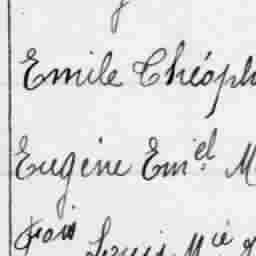 Emile Théoph
Eugène Em.el M
Fois Louis M.ie